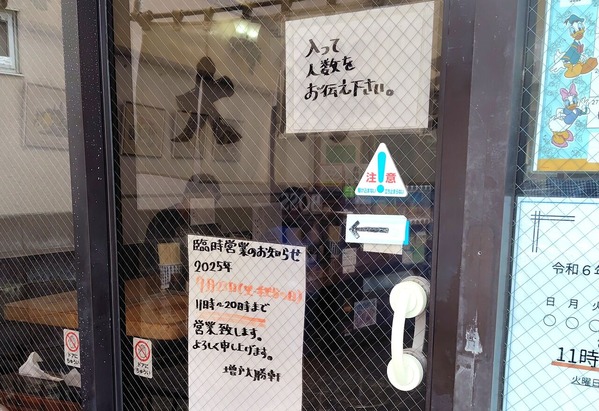 入って
人数を
お伝え下さい。
大
注意
BOSS
臨時営業のお知らせ
2025年
11時~20時まで
営業致します。
よろしく申し上げます。
大勝軒
令和6年
日 月 火
〇 〇 〇
11時
火曜日